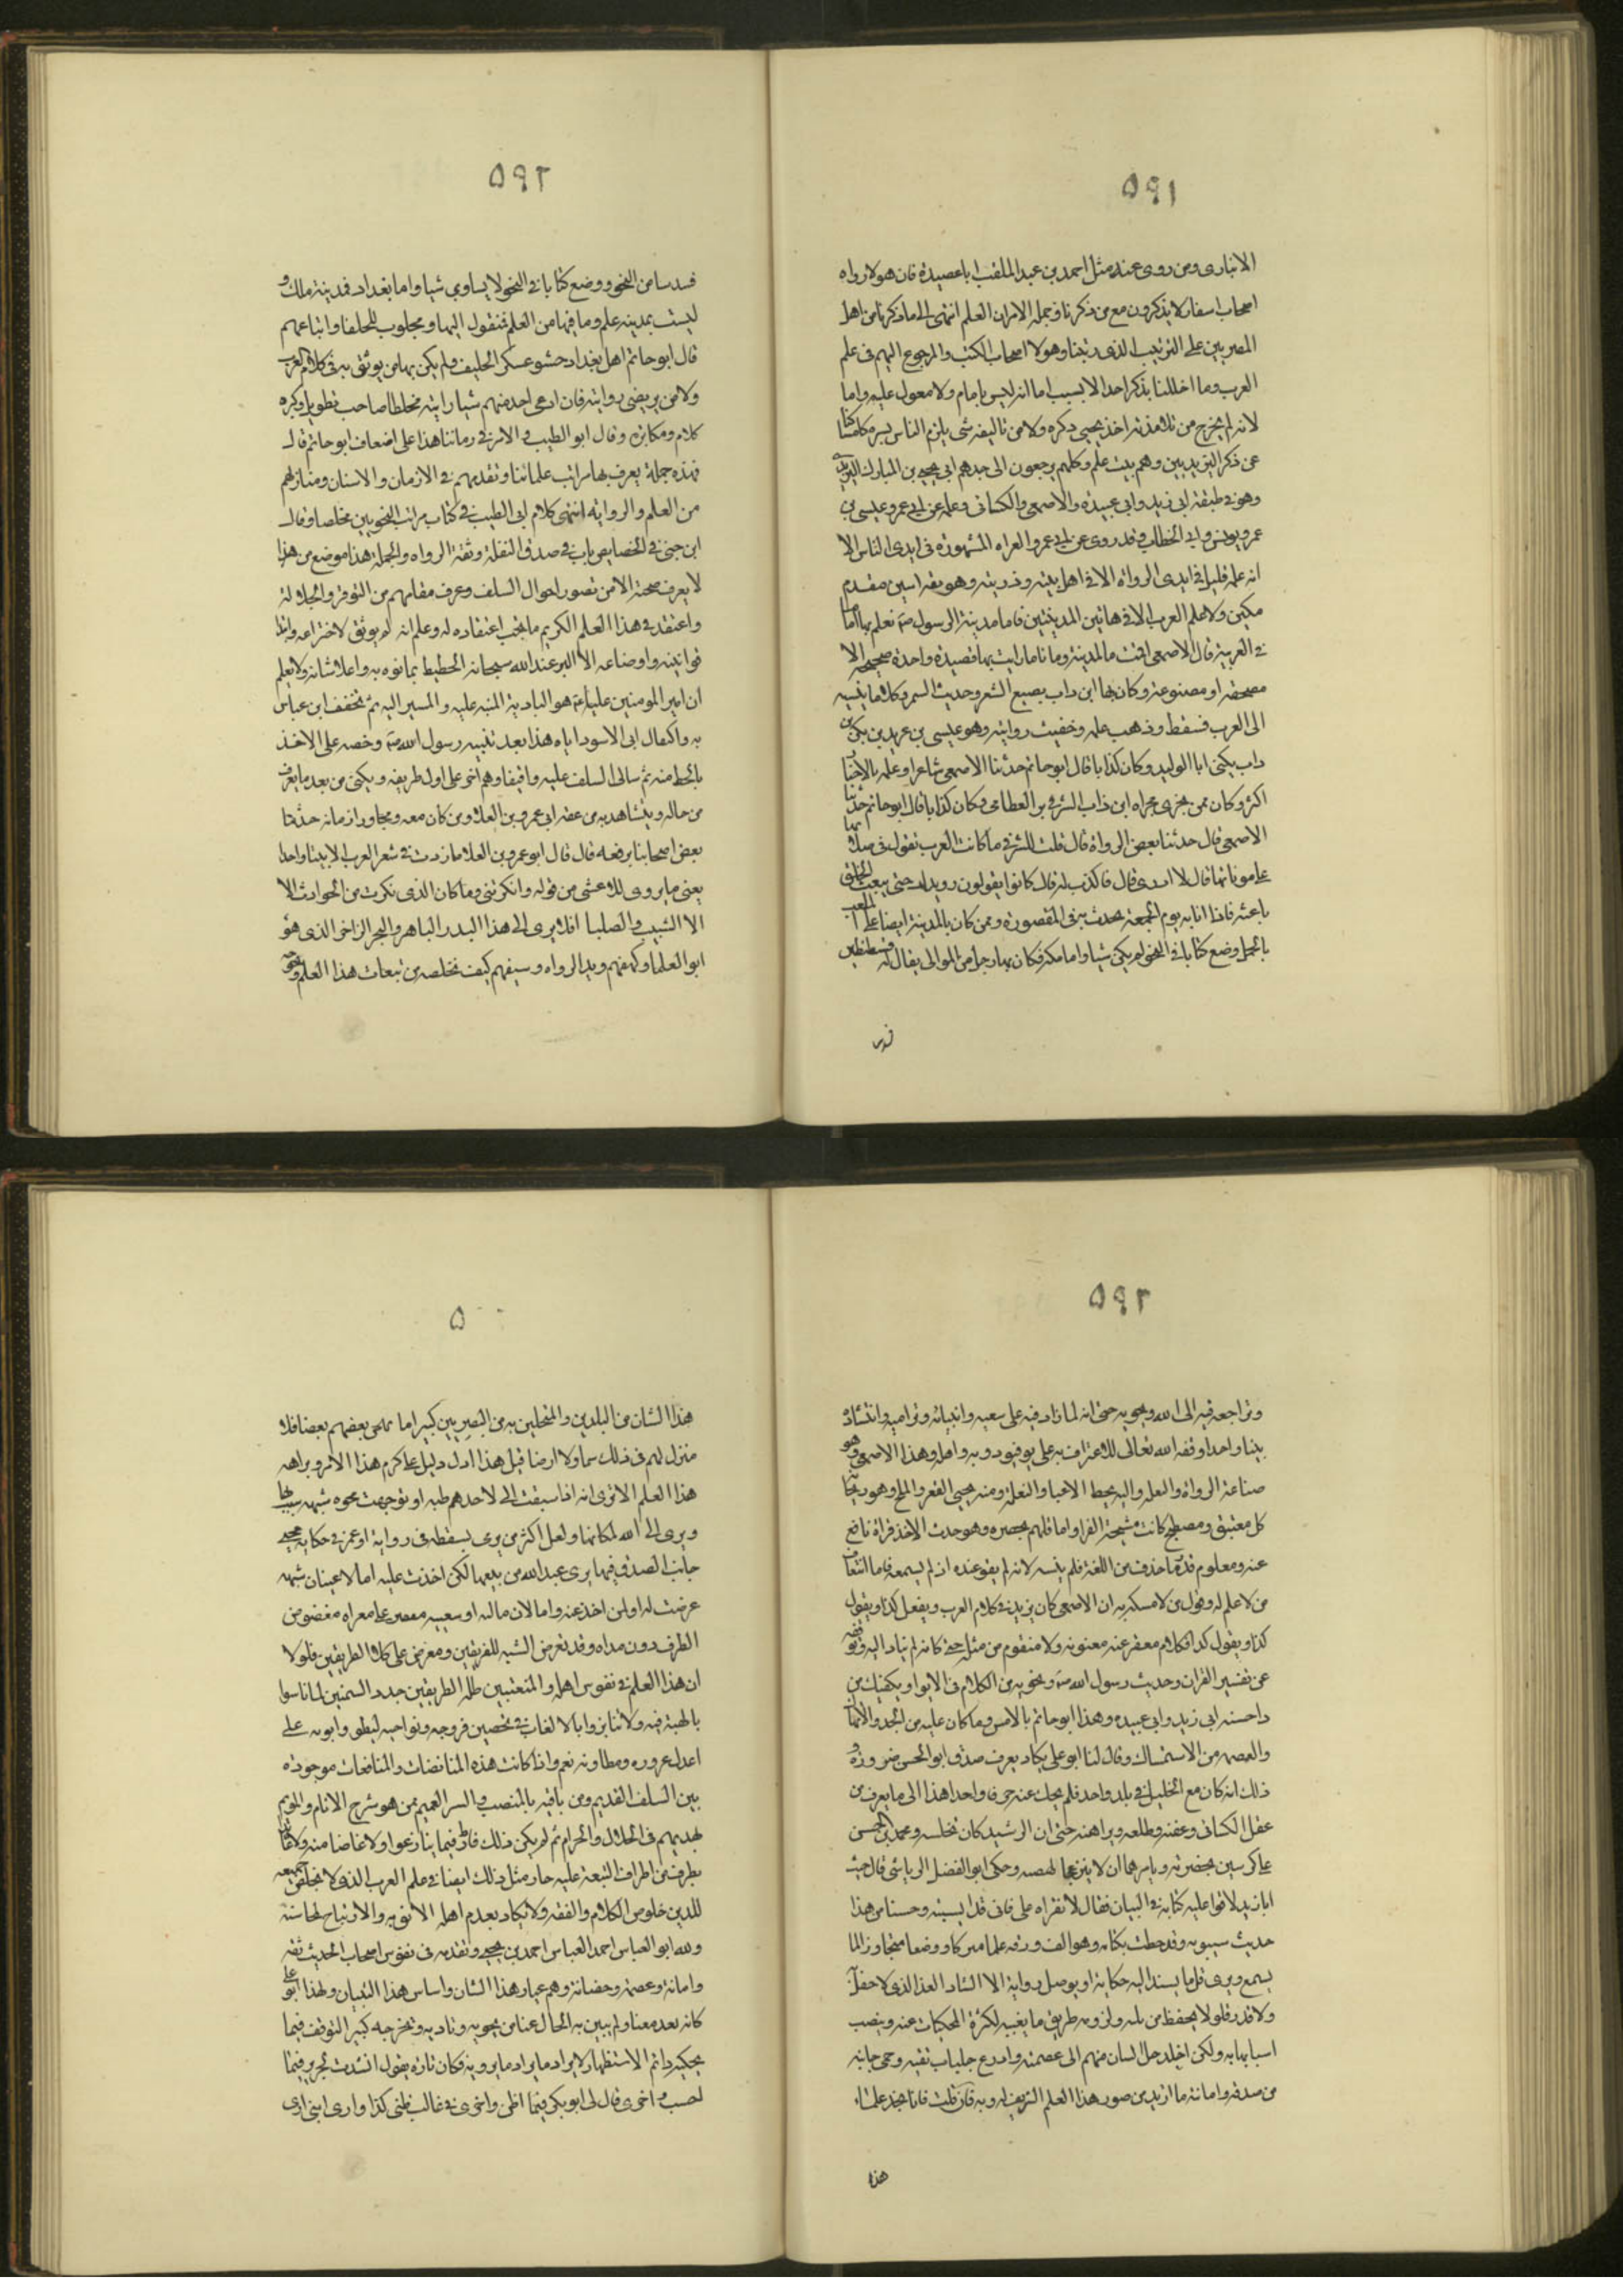 ٥٩١
الانباری ومن روی عنه مثل احمد بن عبید الملقب ابا عصیدة فان هولا رواه
اصحاب اسفار لا یذکرون مع من ذکرنا وجملة الامر ان العلم انتهی الی ما ذکرنا من اهل
المصریین علی الترتیب الذی رتبنا وهولا اصحاب الکتب والمرجوع الیهم فی علم
العرب وما اخللنا بذکر احد الا بسبب اما انه لیس بامام ولا معول علیه واما
لانه لم یخرج من تلامذته احد یحیی ذکره ولا من تالیفه شی یلزم الناس نشره کامساکنا
عن ذکر الیزیدیین وهم بیت علم وکلهم یرجعون الی جدهم ابی محمد یحیی بن المبارک الیزیدی
وهو فی طبقة ابی زید وابی عبیدة والاصمعی والکسائی وعلمه عن ابی عمرو وعیسی بن
عمر ویونس وابی الخطاب وقد روی عن ابی عمرو القراه المشهورة فی ایدی الناس الا
انه علمه قلیل فی ایدی الرواة الا فی اهل بیته وذریته وهو ثقة امین مقدم
مکین ولا علم للعرب الا فی هاتین المدینتین فاما مدینة الرسول ص فلا نعلم بها اماما
فی العربیة قال الاصمعی اقمت بالمدینة زمانا ما رایت بها قصیدة واحدة صحیحة الا
مصحفة او مصنوعة وکان بها ابن داب یصنع الشعر واحادیث السمر وکلاما ینسبه
الی العرب فسقط وذهب علمه وخفیت روایته وهو عیسی بن یزید بن بکر بن
داب یکنی ابا الولید وکان کذابا قال ابو حاتم حدثنا الاصمعی شاعرا وعلمه بالاخبار
اکثر وکان ممن یجری مجراه ابن داب الشرقی بن القطامی وکان کذابا قال ابو حاتم حدثنا
الاصمعی قال حدثنا بعض الرواة قال قلت للشرقی ما کانت العرب تقول فی صلاتها
علی موتاها قال لا ادری قال فاکذب له قال کانوا یقولون رویدک حتی یبعث الخلق
باعثه فاذا انا به یوم الجمعة یحدث به فی المقصورة وممن کان بالمدینة ایضا علی الملقب
بالجمل وضع کتابا فی النحو لم یکن شیا واما مکة فکان بها رجل من الموالی یقال له قسطنطین
٥٩٢
شدا شیا من النحو ووضع کتابا فی النحو لا یساوی شیا واما بغداد فمدینة ملک و
لیست بمدینة علم وما فیها من العلم فمنقول الیها ومجلوب للخلفا واتباعهم
قال ابو حاتم اهل بغداد حشو عسکر الخلیفة ولم یکن بها من یوثق به فی کلام العرب
ولا من یرتضی روایته فان ادعی احد منهم شیا رایته مخلطا صاحب تطویل وکثرة
کلام ومکابرة وقال ابو الطیب والامر فی زماننا هذا علی اضعاف ابو حاتم قال
فهذه جملة یعرف بها مراتب علمائنا وتقدمهم فی الازمان والاسنان ومنازلهم
من العلم والروایة انتهی کلام ابی الطیب فی کتاب مراتب النحویین ملخصا وقال
ابن جنی فی الخصایص باب فی صدق النقلة وثقة الرواه والجملة هذا موضع من هذا
لا یعرف صحته الا من تصور احوال السلف وعرف مقامهم من التوقر والجلالة
واعتقد فی هذا العلم الکریم ما یجب اعتقاده له وعلم انه لم یوفق لاختراعه وابتدا
قوانینه واوضاعه الا البر عند الله سبحانه الحظیظ بما نوه به واعلا شانه ولا یعلم
ان امیر المومنین علیا ع هو البادیة المنبه علیه والمشیر الیه ثم تحقق ابن عباس
به واکتفال ابی الاسود ایاه هذا بعد تنبیه رسول الله ص وحضه علی الاخذ
بالحظ منه ثم تتالی السلف علیه واقتفاوهم اخرا علی اول طریقه ویکفی من بعد ما یعرف
من حاله ویتشاهد به من عفة ابی عمرو بن العلا ومن کان معه ومجاورا زمانه حدثنا
بعض اصحابنا یرفعه قال قال ابو عمرو بن العلا ما زدت فی شعر العرب الا بیتا واحدا
یعنی ما یروی للاعشی من قوله وانکرتنی وما کان الذی نکرت من الحوادث الا
الا الشیب والصلعا افلا یری الی هذا البدر الباهر والبحر الزاخر الذی هو
ابو العلما وکهفهم وید الرواه وسیفهم کیف تخلصه من تبعات هذا العلم وتحرجه
٥٩٣
وتراجعه فیه الی الله وتحوبه حتی انه لما زاد فیه علی سعته وانبثاثه وترامیه وانتشاره
بیتا واحدا وفقه الله تعالی للاعتراف به علی توفیق ذویه واهله وهذا الاصمعی وهو
صناعة الرواة والنقلة والیه محط الاعبا والثقلة ومنه تجنی الفقر والملح وهو ریحانة
کل مغتبق ومصطبح کانت مشیخة القرا واماثلهم تحضره وهو حدث لاخذ قراة نافع
عنه ومعلوم قدر ما حذف من اللغة فلم یثبته لانه لم یقو عنده اذ لم یسمعه فاما اسفاف
من لا علم له وقول من لا مسکة به ان الاصمعی کان یزید فی کلام العرب ویفعل کذا ویقول
کذا ویقول کذا فکلام معفو عنه غیر معبو به ولا منقوم من مثله حتی کانه لم یتاد الیه توقفه
عن تفسیر القران وحدیث رسول الله ص وتحوبه من الکلام فی الانوا ویکفیک من
ذا خشنة ابی زید وابی عبیده وهذا ابو حاتم بالامس وما کان علیه من الجد والانهماک
والعصمة من الاستمساک وقال لنا ابو علی یکاد یعرف صدق ابو الحسن ضرورة و
ذلک انه کان مع الخلیل فی بلد واحد فلم یحک عنه حرفا واحدا هذا الی ما یعرف من
عقل الکسائی وعفته وظلفه ونزاهته حتی ان الرشید کان یجلسه ومحمد بن الحسن
علی کرسیین بحضرته ویامرهما ان لا ینزعجا لنهضته وحکی ابو الفضل الریاشی قال جئت
ابا زید لاقرا علیه کتابه فی النبات فقال لا تقراه علی فانی قد انسیته وحسبنا من هذا
حدیث سیبویه وقد حطب بکتابه وهو الف ورقة علما مبتکرا ووضعا متجاوزا لما
یسمع ویری قل ما یسند الیه حکایة او یوصل روایة الا الشاذ الفذ الذی لا حفل به
ولا قدر فلولا تحفظ من یلیه ولزومه طریق ما یعنیه لکثرت المحکیات عنه ونیطت
اسبابها به ولکن اخلد کل انسان منهم الی عصمته وادرع جلباب ثقته وحمی جانبه
من صدقه وامانته ما ارید من صون هذا العلم الشریف له وبه فان قلت فانا نجد علماء
هذا
٥
هذا الشان من البلدین والمتحلین به من البصریین کثیرا ما یهجن بعضهم بعضا فلا
یترک لهم فی ذلک سما ولا ارضا قیل هذا ادل دلیل علی کرم هذا الامر ونزاهة
هذا العلم الا تری انه اذا سبقت الی احدهم ظنه او توجهت نحوه شبهة سبب بها
وبری الی الله لمکانها ولعل اکثر من یرمی بسقطة فی روایة او غمز فی حکایة محمی
جانب الصدق فیها بری عند الله من تبعتها لکن اخذت علیه اما لاعتنان شبهة
عرضت له او لمن اخذ عنه واما لان ثالبه ومتعیبه مقصر عن مغزاه مغضوض
الطرف دون مداه وقد تعرض الشبه للفریقین وتعترض علی کلا الطریقین فلولا
ان هذا العلم فی نفوس اهله والمتفیین بظله کریم الطرفین جدد السمتین لما تسابوا
بالهجنة فیه ولا تنابزوا بالالقاب فی تحصین فروجه ونواحیه لیطووا ثوبه علی
اعدل غروره ومطاویه نعم واذا کانت هذه المناقضات والمنافسات موجودة
بین السلف القدیم ومن باء فیه بالمنصب والشرف العمیم ممن هو سرج الانام والموتم
بهدیهم فی الحلال والحرام ثم لم یکن ذلک قادحا فیما تنازعوا ولا غاضا منه ولا عائدا
بطرف من اطراف التبعة علیه جاز مثل ذلک ایضا فی علم العرب الذی لا یخلص جمیعه
للدین خلوص الکلام والفقه ولا یکاد یعدم اهله الانق به والارتیاح لمحاسنه
ولله ابو العباس احمد بن یحیی وتقدمه فی نفوس اصحاب الحدیث ثقة
وامانة وعصمة وحصانة وهم عیار هذا الشان واساس هذا البنیان ولهذا ابو علی
کانه بعد معنا ولم تبن به الحال عنا من تحوبه وتادبه وتحرجه کثیر التوقف فیما
یحکیه دائم الاستظهار لایراد ما یرویه فکان تارة یقول انشدت لجریر فیما
احسب واخری قال لی ابو بکر فیما اظن واخری فی غالب ظنی کذا واری اننی اری